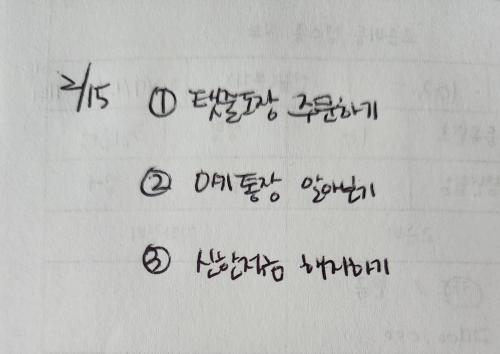 2/15 ① 탯줄도장 주문하기
② 아기통장 알아보기
③ 신한적금 해지하기